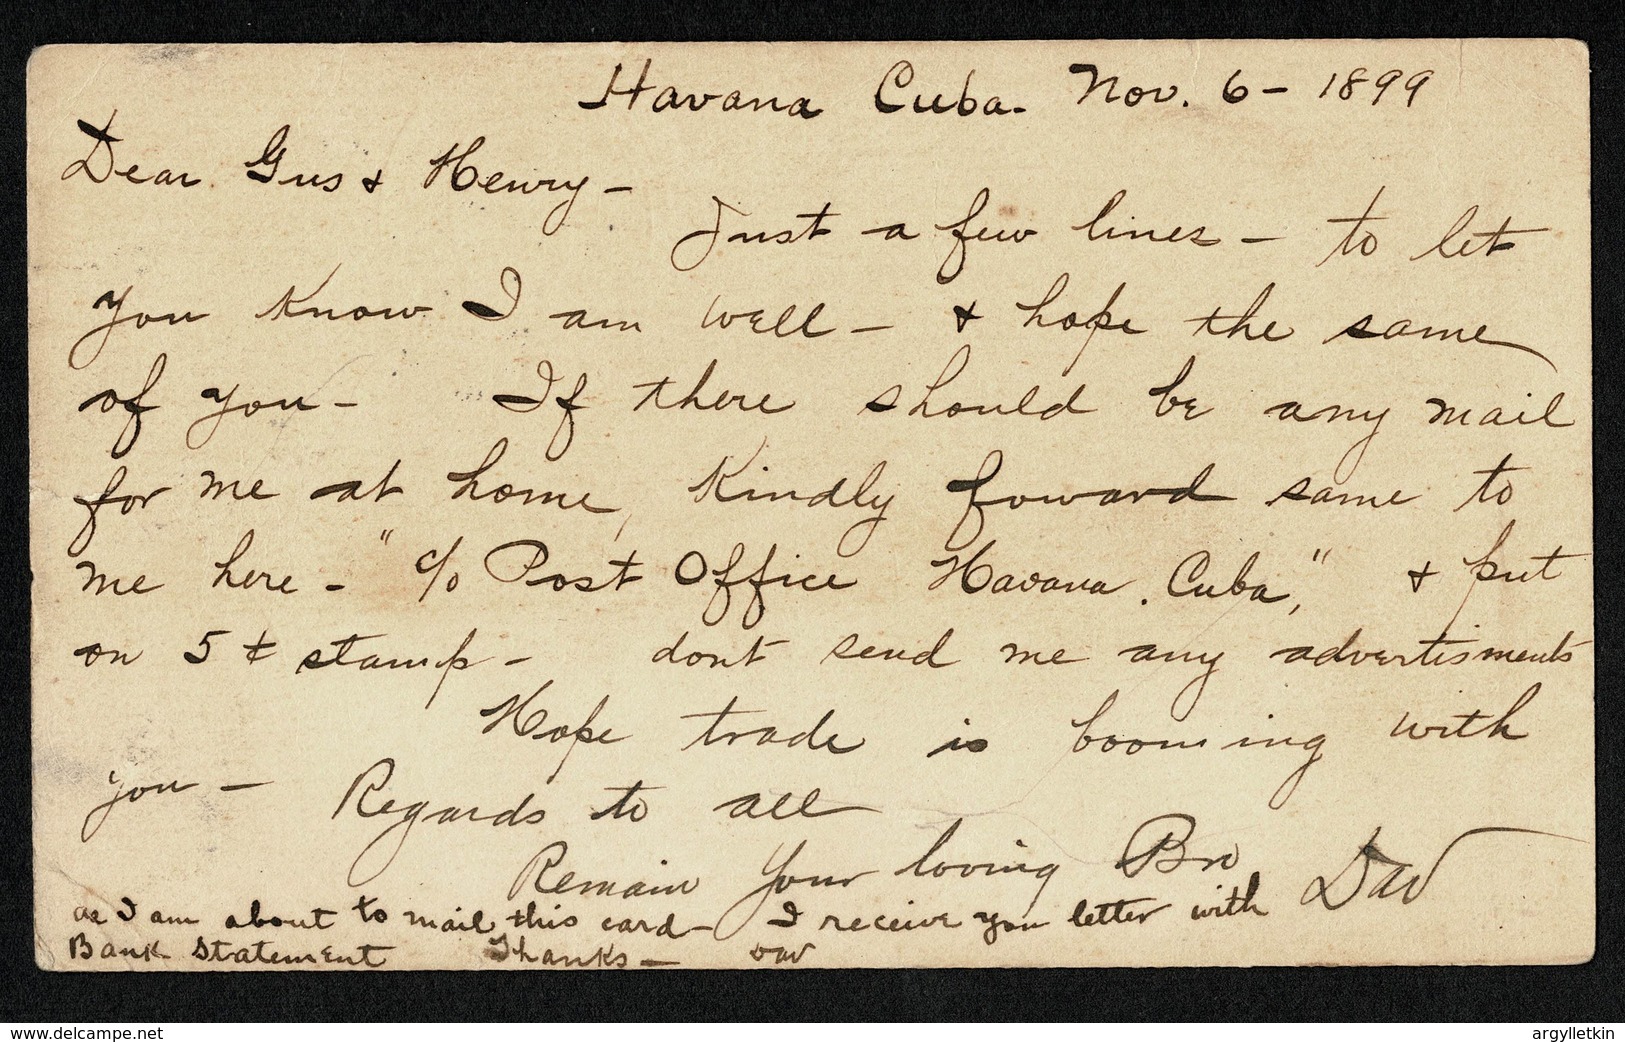 Havana Cuba. Nov. 6 - 1899
Dear Gus & Henry -
Just a few lines - to let
you know I am well - & hope the same
of you - If there should be any mail
for me at home, kindly foward same to
me here - " c/o Post Office Havana. Cuba," & put
on 5 ¢ stamp - dont send me any advertisments
Hope trade is booming with
you - Regards to all
Remain Your loving Bro Dav
as I am about to mail this card - I receive you letter with
Bank Statement Thanks - Dav
www.delcampe.net
argylletkin